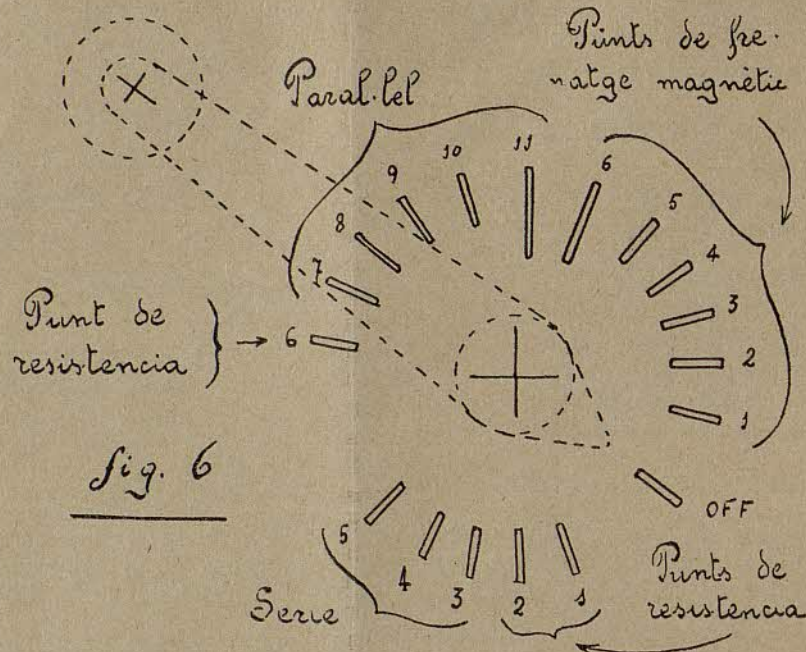 Punts de fre-
natge magnètic
Paral·lel
11
6
10
9
5
8
4
7
3
6
2
1
Punt de
resistencia
fig. 6
OFF
5
4
3
2
1
Serie
Punts de
resistencia